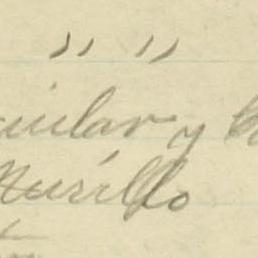 " "
uilar y
Murillo